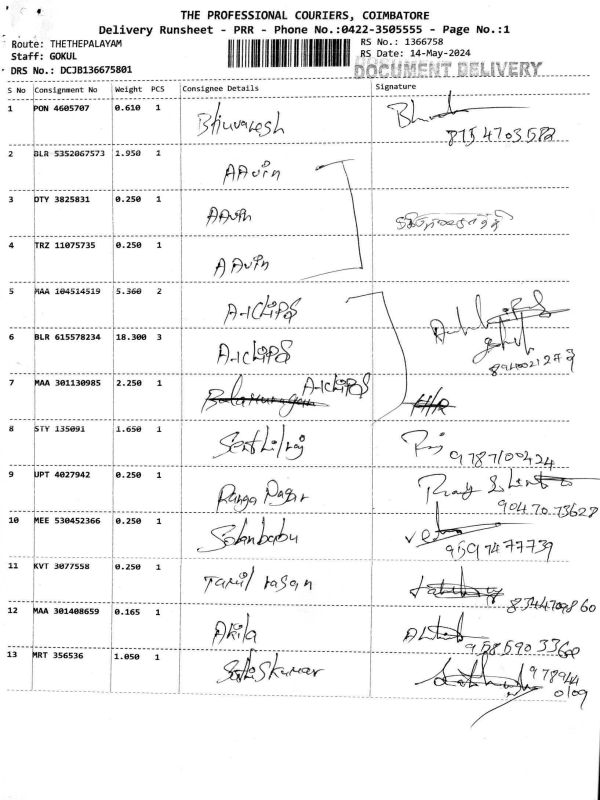 THE PROFESSIONAL COURIERS, COIMBATORE
Delivery Runsheet - PRR - Phone No.:0422-3505555 - Page No.:1
Route: THETHEPALAYAM
Staff: GOKUL
DRS No.: DCJB136675801
RS No.: 1366758
RS Date: 14-May-2024
DOCUMENT DELIVERY
S No Consignment No Weight PCS Consignee Details Signature
1 PON 4605707 0.610 1 Bhuvanesh
8154703582
2 BLR 5352067573 1.950 1 AAvin
3 DTY 3825831 0.250 1 AAvin
4 TRZ 11075735 0.250 1 AAvin
5 MAA 104514519 5.360 2 A-1 CLIPS
6 BLR 615578234 18.300 3 A-1 CLIPS
7 MAA 301130985 2.250 1 Balamurugan A-1 CLIPS H/R
8 STY 135091 1.650 1 Senthilraj
9787100424
9 UPT 4027942 0.250 1 Ranga Nagar
90470 73628
10 MEE 530452366 0.250 1
9597477739
11 KVT 3077558 0.250 1 Tamil rasan
8344709860
12 MAA 301408659 0.165 1 Akila
9585903360
13 MRT 356536 1.050 1 Sathiskumar
978944
0109